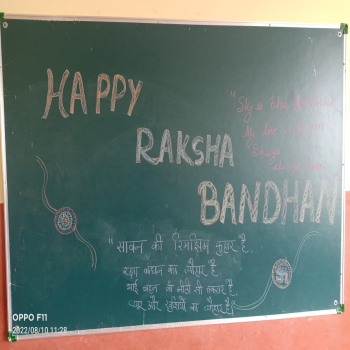 HAPPY
RAKSHA
BANDHAN
"Sky is blue
"सावन की रिमझिम फुहार है,
रक्षा बंधन का त्यौहार है,
भाई बहन की मीठी सी तकरार है
प्यार और खुशियों का त्यौहार है"
OPPO F11
2022/08/10 11:28